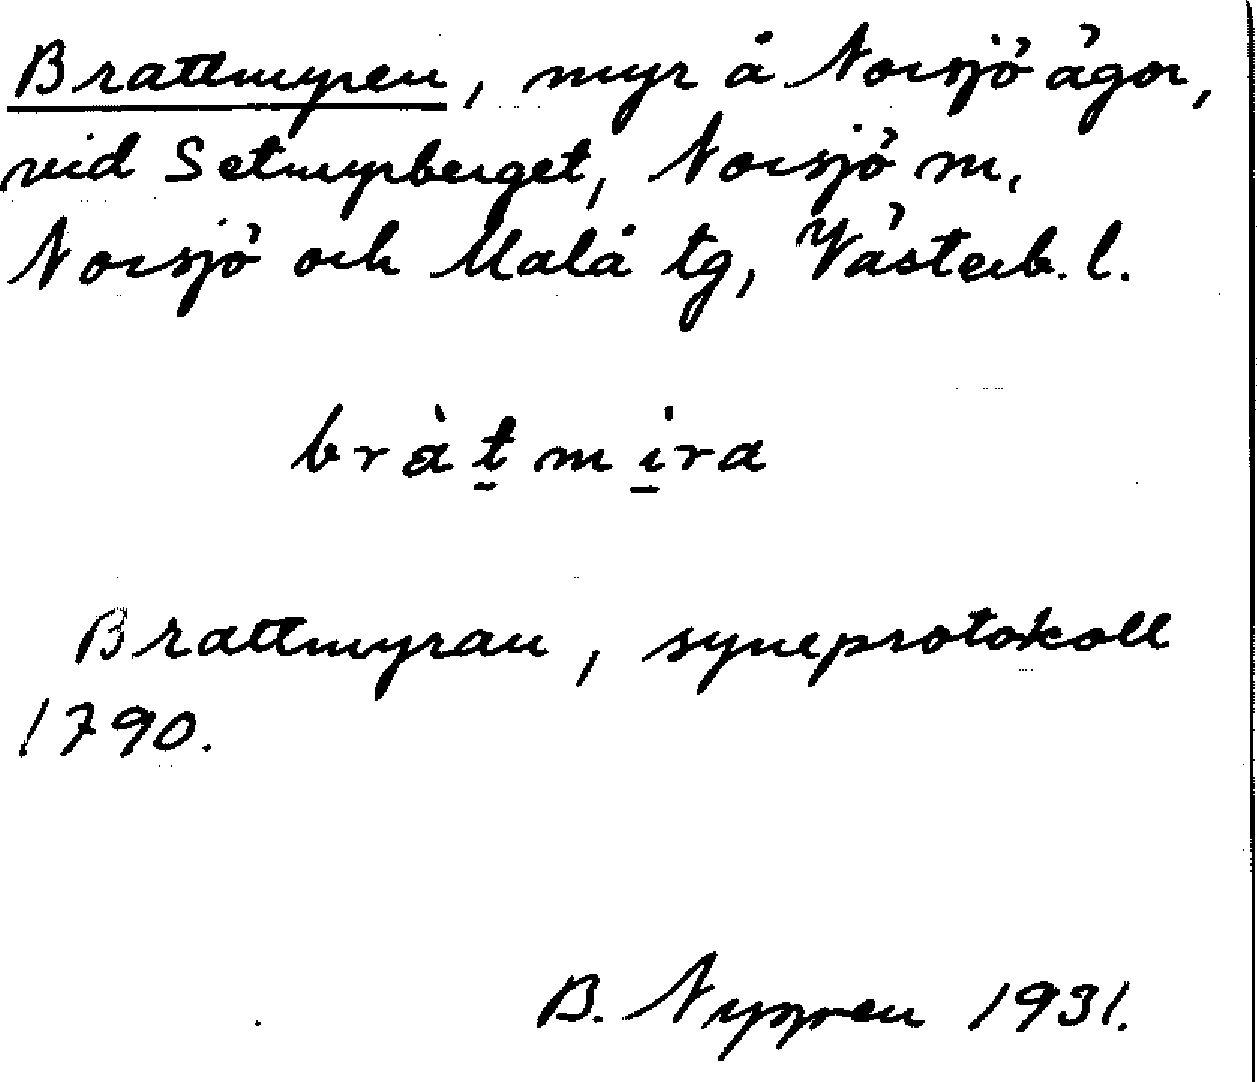 Brattmyren, myr å Norsjö ägor,
vid Setmyrberget, Norsjö m,
Norsjö och Malå tg, Västerb. l.
bràt̠mi̠ra
Brattmyran, syneprotokoll
1790.
B. Nygren 1931.